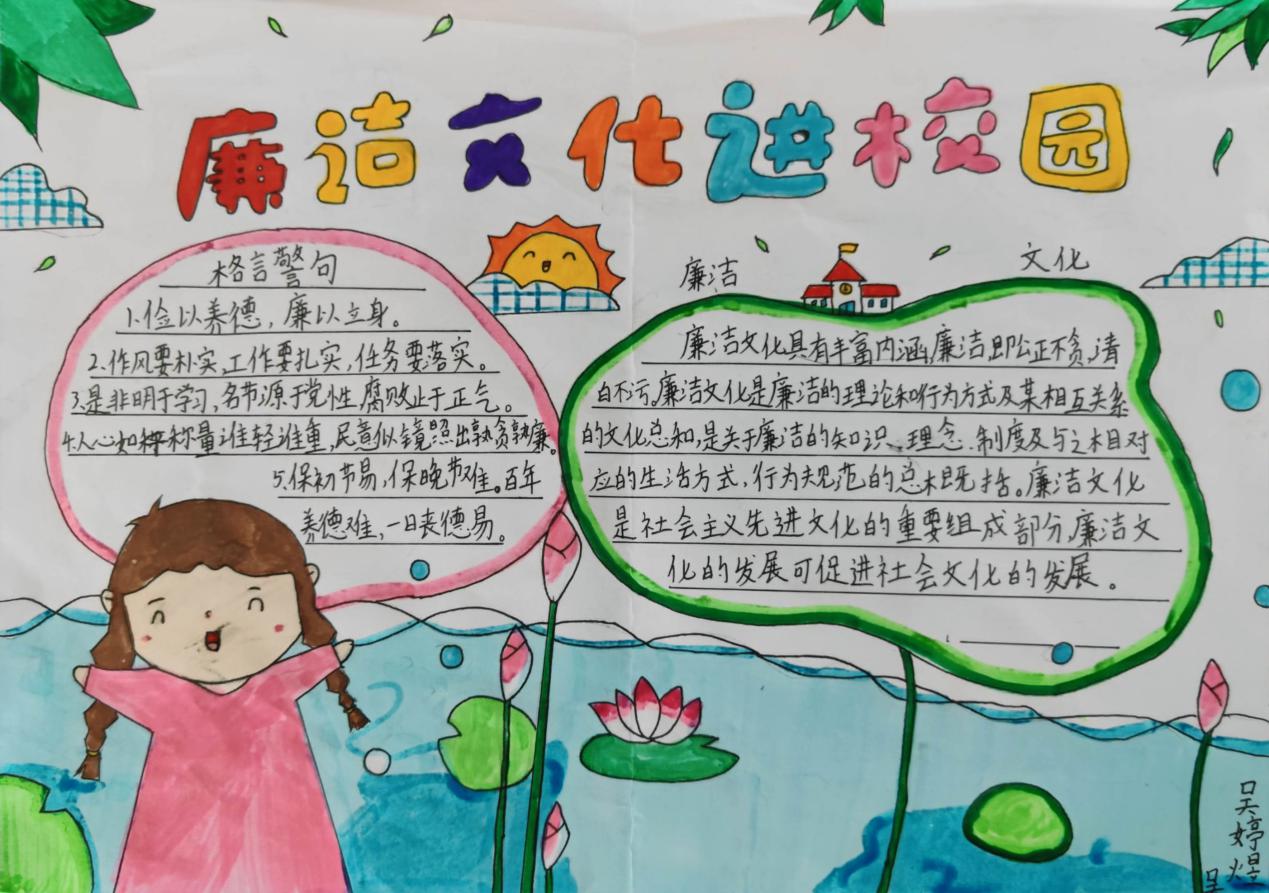 廉洁文化进校园
格言警句
1.俭以养德，廉以立身。
2.作风要朴实，工作要扎实，任务要落实。
3.是非明于学习，名节源于党性，腐败止于正气。
4.人心如秤称量谁轻谁重，民意似镜照出孰贪孰廉。
5.保初节易，保晚节难。百年
养德难，一日丧德易。
廉洁 文化
廉洁文化具有丰富内涵，廉洁即公正不贪，清
白不污，廉洁文化是廉洁的理论和行为方式及某相互关系
的文化总和，是关于廉洁的知识、理念、制度及与之相对
应的生活方式，行为规范的总概括。廉洁文化
是社会主义先进文化的重要组成部分，廉洁文
化的发展可促进社会文化的发展。
吴婷煜